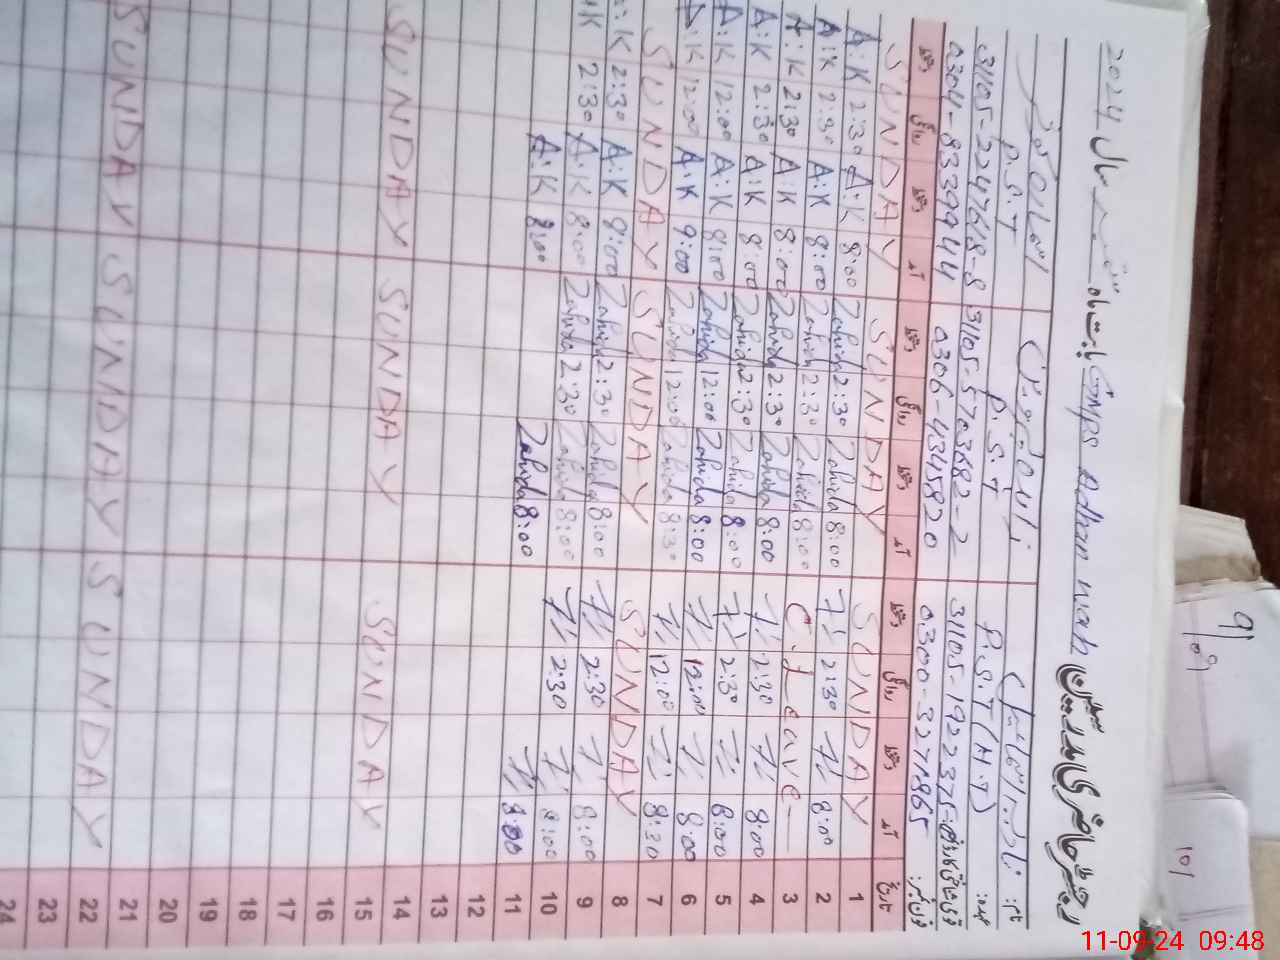 رجسٹر حاضری مدرسین GMPS Adham wah بابت ماہ ستمبر سال 2024
نام:
عہدہ: P.S.T (H.T) P.S.T P.S.T
قومی شناختی کارڈ نمبر: 31105-1922375- 31105-5703882-2 31105-2247618-8
فون نمبر: 0300-3271865 0306-4345820 0304-8339944
تاریخ آمد دستخط روانگی دستخط آمد دستخط روانگی دستخط آمد دستخط روانگی دستخط
SUNDAY SUNDAY SUNDAY 1
A:K 2:30 A:K 8:00 Zahida 2:30 Zahida 8:00 2:30 8:00 2
A:K 2:30 A:K 8:00 Zahida 2:30 Zahida 8:00 C.Leave 3
A:K 2:30 A:K 8:00 Zahida 2:30 Zahida 8:00 2:30 8:00 4
A:K 2:30 A:K 8:00 Zahida 2:30 Zahida 8:00 2:30 8:00 5
A:K 12:00 A:K 8:00 Zahida 12:00 Zahida 8:00 12:00 8:00 6
A:K 12:00 A:K 9:00 Zahida 12:00 Zahida 8:30 12:00 8:30 7
SUNDAY SUNDAY SUNDAY 8
A:K 2:30 A:K 8:00 Zahida 2:30 Zahida 8:00 2:30 8:00 9
A:K 2:30 A:K 8:00 Zahida 2:30 Zahida 8:00 2:30 8:00 10
A:K 8:00 Zahida 8:00 8:00 11
12
13
14
SUNDAY SUNDAY SUNDAY 15
16
17
18
19
20
21
SUNDAY SUNDAY SUNDAY 22
23
24
101
11-09-24 09:48